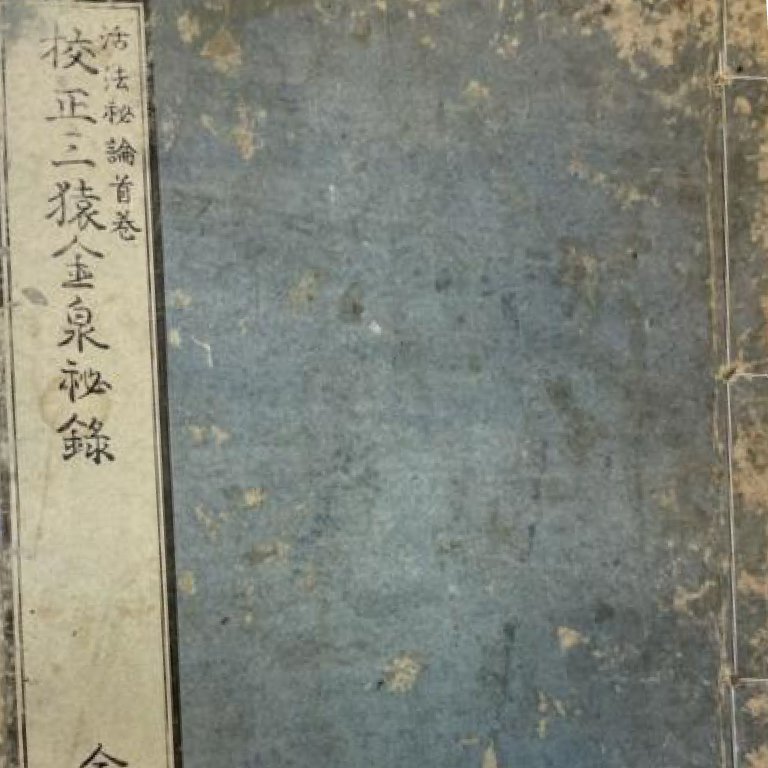 活法秘論首巻
校正三猿金泉祕錄
全